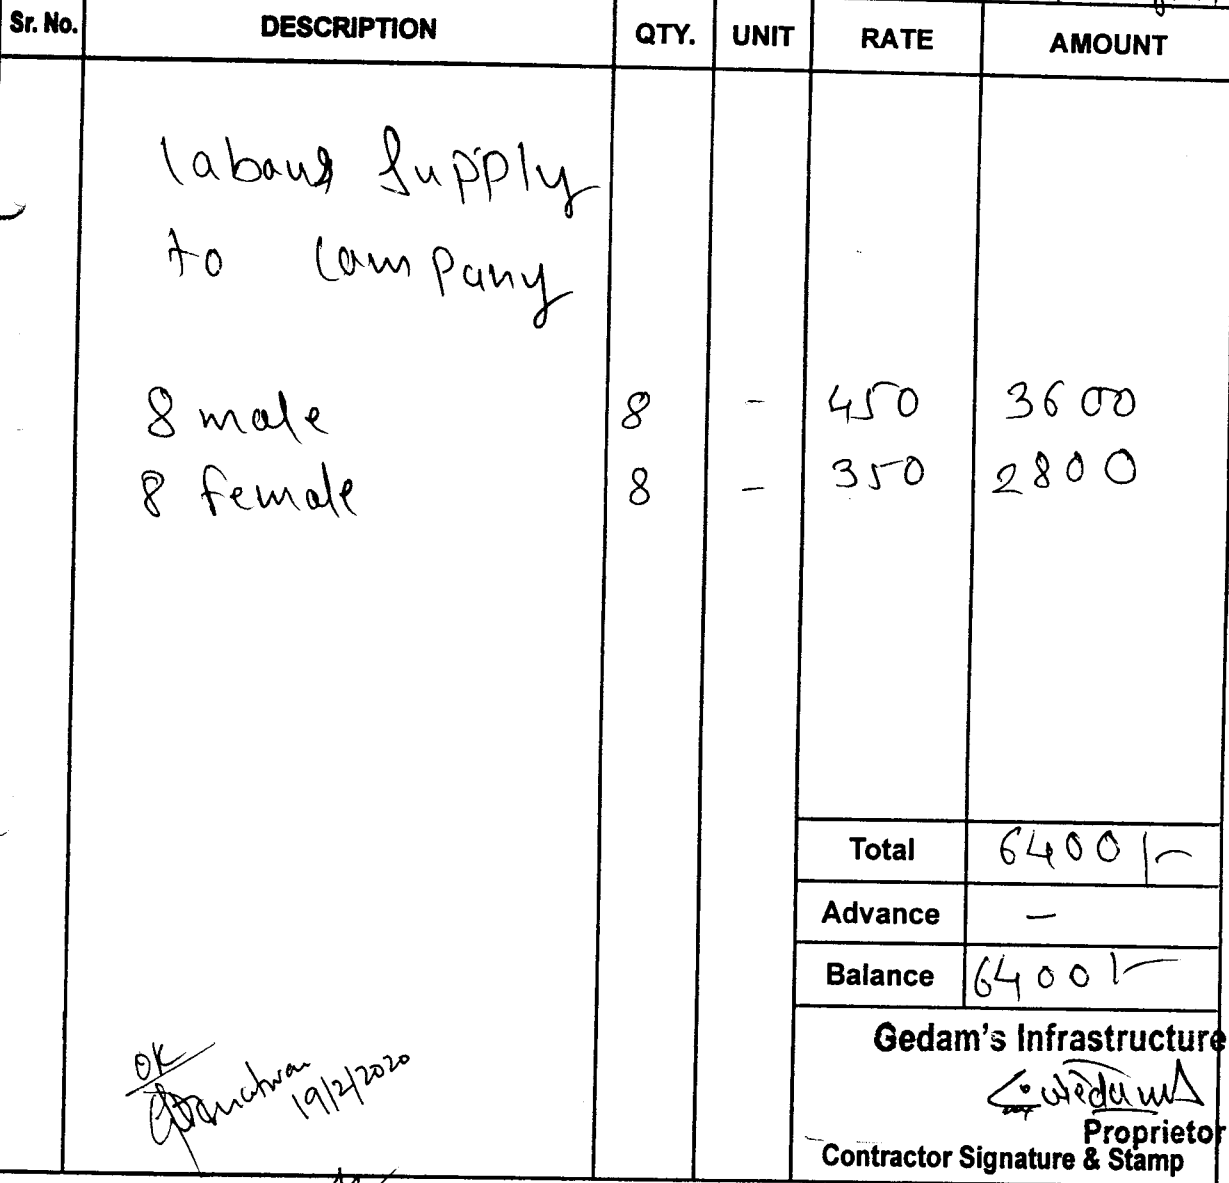 Sr. No. DESCRIPTION QTY. UNIT RATE AMOUNT
labour Supply
to Company
8 male 8 - 450 3600
8 Female 8 - 350 2800
Total 6400/-
Advance -
Balance 6400/-
Gedam's Infrastructure
Proprietor
Contractor Signature & Stamp
OK
19/2/2020